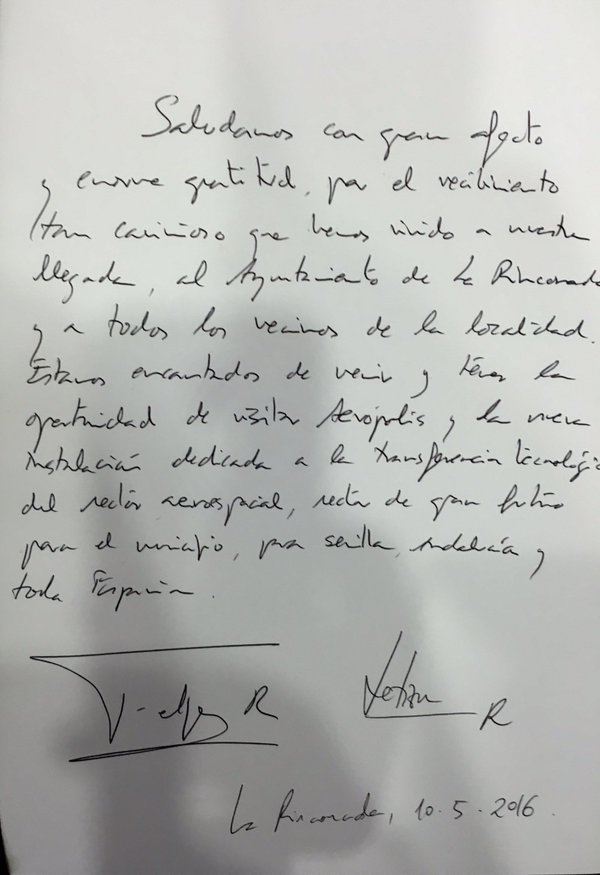 Saludamos con gran afecto
y enorme gratitud, por el recibimiento
tan cariñoso que hemos vivido a nuestra
llegada, al Ayuntamiento de La Rinconada
y a todos los vecinos de la localidad.
Estamos encantados de venir y tener la
oportunidad de visitar Aerópolis y la nueva
instalación dedicada a la transferencia tecnológic
del sector aeroespacial, sector de gran futuro
para el municipio, para Sevilla, Andalucía y
toda España.
Felipe R
Letizia R
La Rinconada, 10.5.2016.